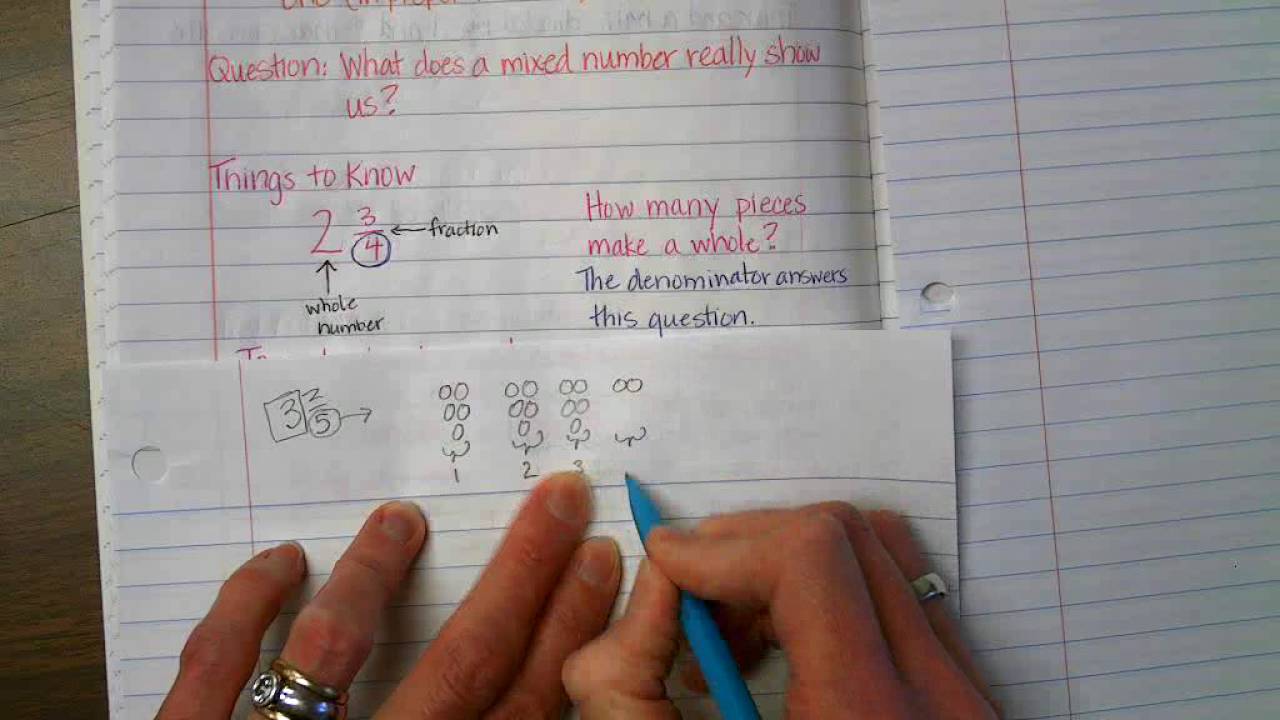 Question: What does a mixed number really show
us?
Things to Know
2 3/4 ← fraction
whole
number
How many pieces
make a whole?
The denominator answers
this question.
3 2/5 →
1 2 3